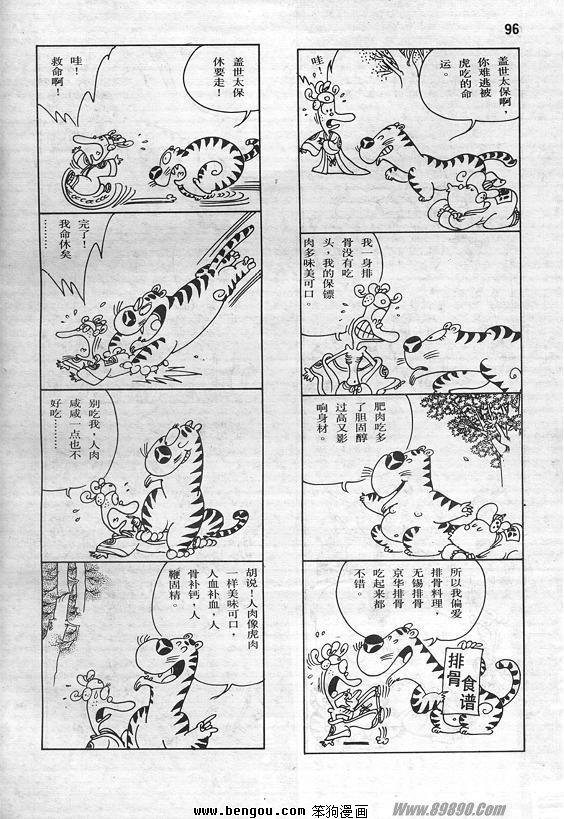 96
盖世太保啊，
你难逃被
虎吃的命
运。
哇！
我一身排
骨没有吃
头，我的保镖
肉多味美可口。
肥肉吃多
了胆固醇
过高又影
响身材。
所以我偏爱
排骨料理，
无锡排骨
京华排骨
吃起来都
不错。
排骨
食谱
盖世太保
休要走！
哇！
救命啊！
完了！
我命休矣
………
别吃我，人肉
咸咸一点也不
好吃………
胡说！人肉像虎肉
一样美味可口，
人血补血，人
骨补钙，人
鞭固精。
www.bengou.com 笨狗漫画
Www.89890.Com